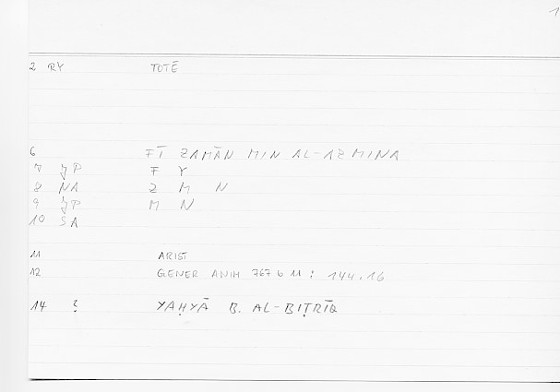 1
2 RY TOTĒ
6 FĪ ZAMĀN MIN AL-AZMINA
7 JP F Y
8 NA Z M N
9 JP M N
10 SA
11 ARIST
12 GENER ANIM 767 b 11 : 144.16
14 YAḤYĀ B. AL-BIṬRĪQ